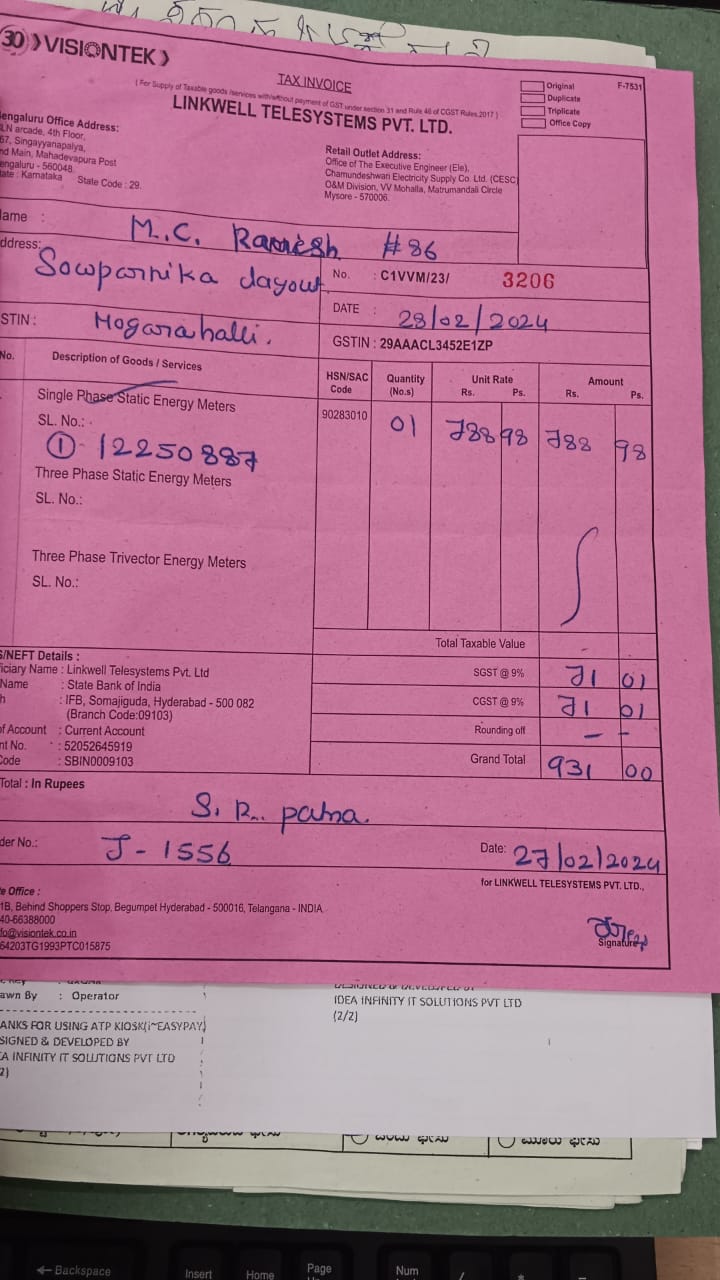 30 VISIONTEK
TAX INVOICE
( For Supply of Taxable goods /services with/without payment of GST under section 31 and Rule 46 of CGST Rules,2017 )
LINKWELL TELESYSTEMS PVT. LTD.
Original
Duplicate
Triplicate
Office Copy
F-7531
engaluru Office Address:
LN arcade, 4th Floor,
67, Singayyanapalya,
nd Main, Mahadevapura Post
engaluru - 560048
tate : Karnataka State Code : 29.
Retail Outlet Address:
Office of The Executive Engineer (Ele),
Chamundeshwari Electricity Supply Co. Ltd. (CESC)
O&M Division, VV Mohalla, Matrumandali Circle
Mysore - 570006.
ame : M.C. Ramesh #86
ddress: Sowparnika Layout
No. : C1VVM/23/ 3206
DATE : 28/02/2024
STIN : Hogarahalli.
GSTIN : 29AAACL3452E1ZP
No. Description of Goods / Services HSN/SAC Code Quantity (No.s) Unit Rate Rs. Ps. Amount Rs. Ps.
Single Phase Static Energy Meters 90283010 01 788 98 788 98
SL. No.:
① 12250887
Three Phase Static Energy Meters
SL. No.:
Three Phase Trivector Energy Meters
SL. No.:
Total Taxable Value -
S/NEFT Details :
ficiary Name : Linkwell Telesystems Pvt. Ltd
SGST @ 9% 71 01
Name : State Bank of India
h : IFB, Somajiguda, Hyderabad - 500 082
CGST @ 9% 71 01
(Branch Code:09103)
of Account : Current Account
Rounding off - -
nt No. : 52052645919
Code : SBIN0009103
Grand Total 931 00
Total : In Rupees
S. R.
der No.: J-1556
Date: 27/02/2024
for LINKWELL TELESYSTEMS PVT. LTD.,
e Office :
1B, Behind Shoppers Stop, Begumpet Hyderabad - 500016, Telangana - INDIA
40-66388000
fo@visiontek.co.in
64203TG1993PTC015875
Signature
awn By : Operator
IDEA INFINITY IT SOLUTIONS PVT LTD
(2/2)
ANKS FOR USING ATP KIOSK(i~EASYPAY)
SIGNED & DEVELOPED BY
EA INFINITY IT SOLUTIONS PVT LTD
2)
Backspace
Insert
Home
Page
Num